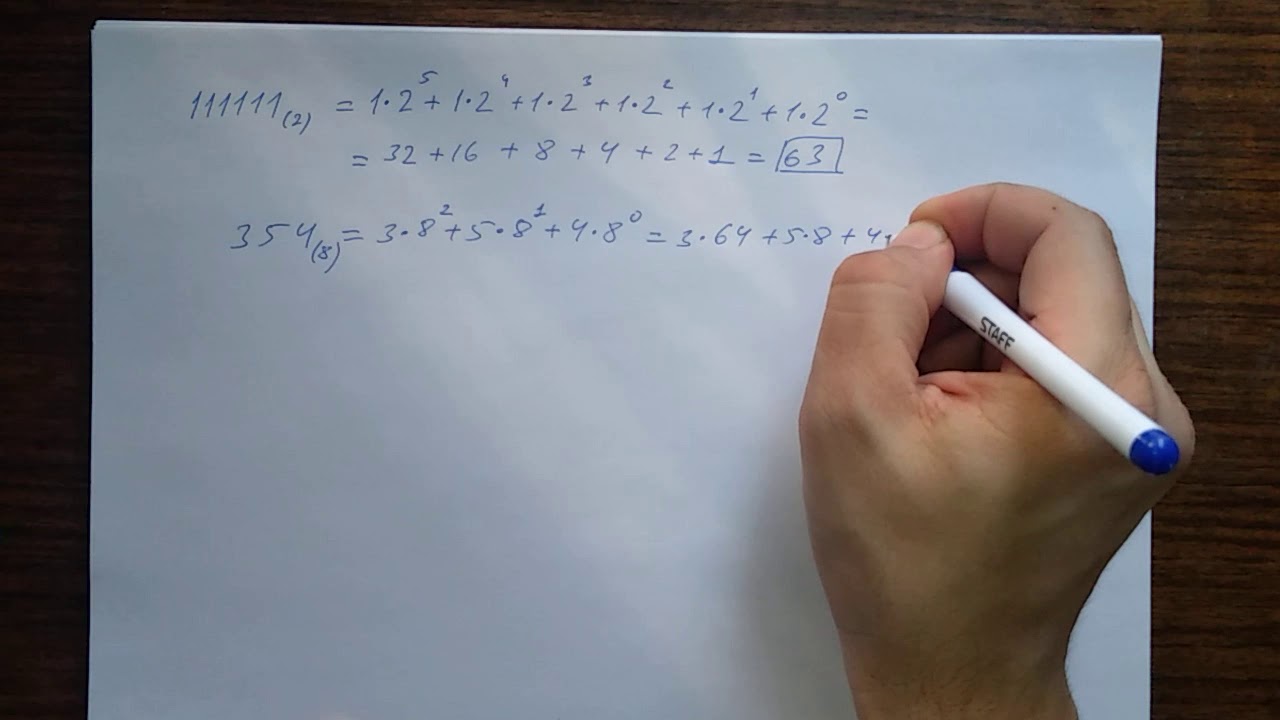 111111₍₂₎ = 1·2⁵ + 1·2⁴ + 1·2³ + 1·2² + 1·2¹ + 1·2⁰ =
= 32 + 16 + 8 + 4 + 2 + 1 = 63
354₍₈₎ = 3·8² + 5·8¹ + 4·8⁰ = 3·64 + 5·8 + 4
STAFF